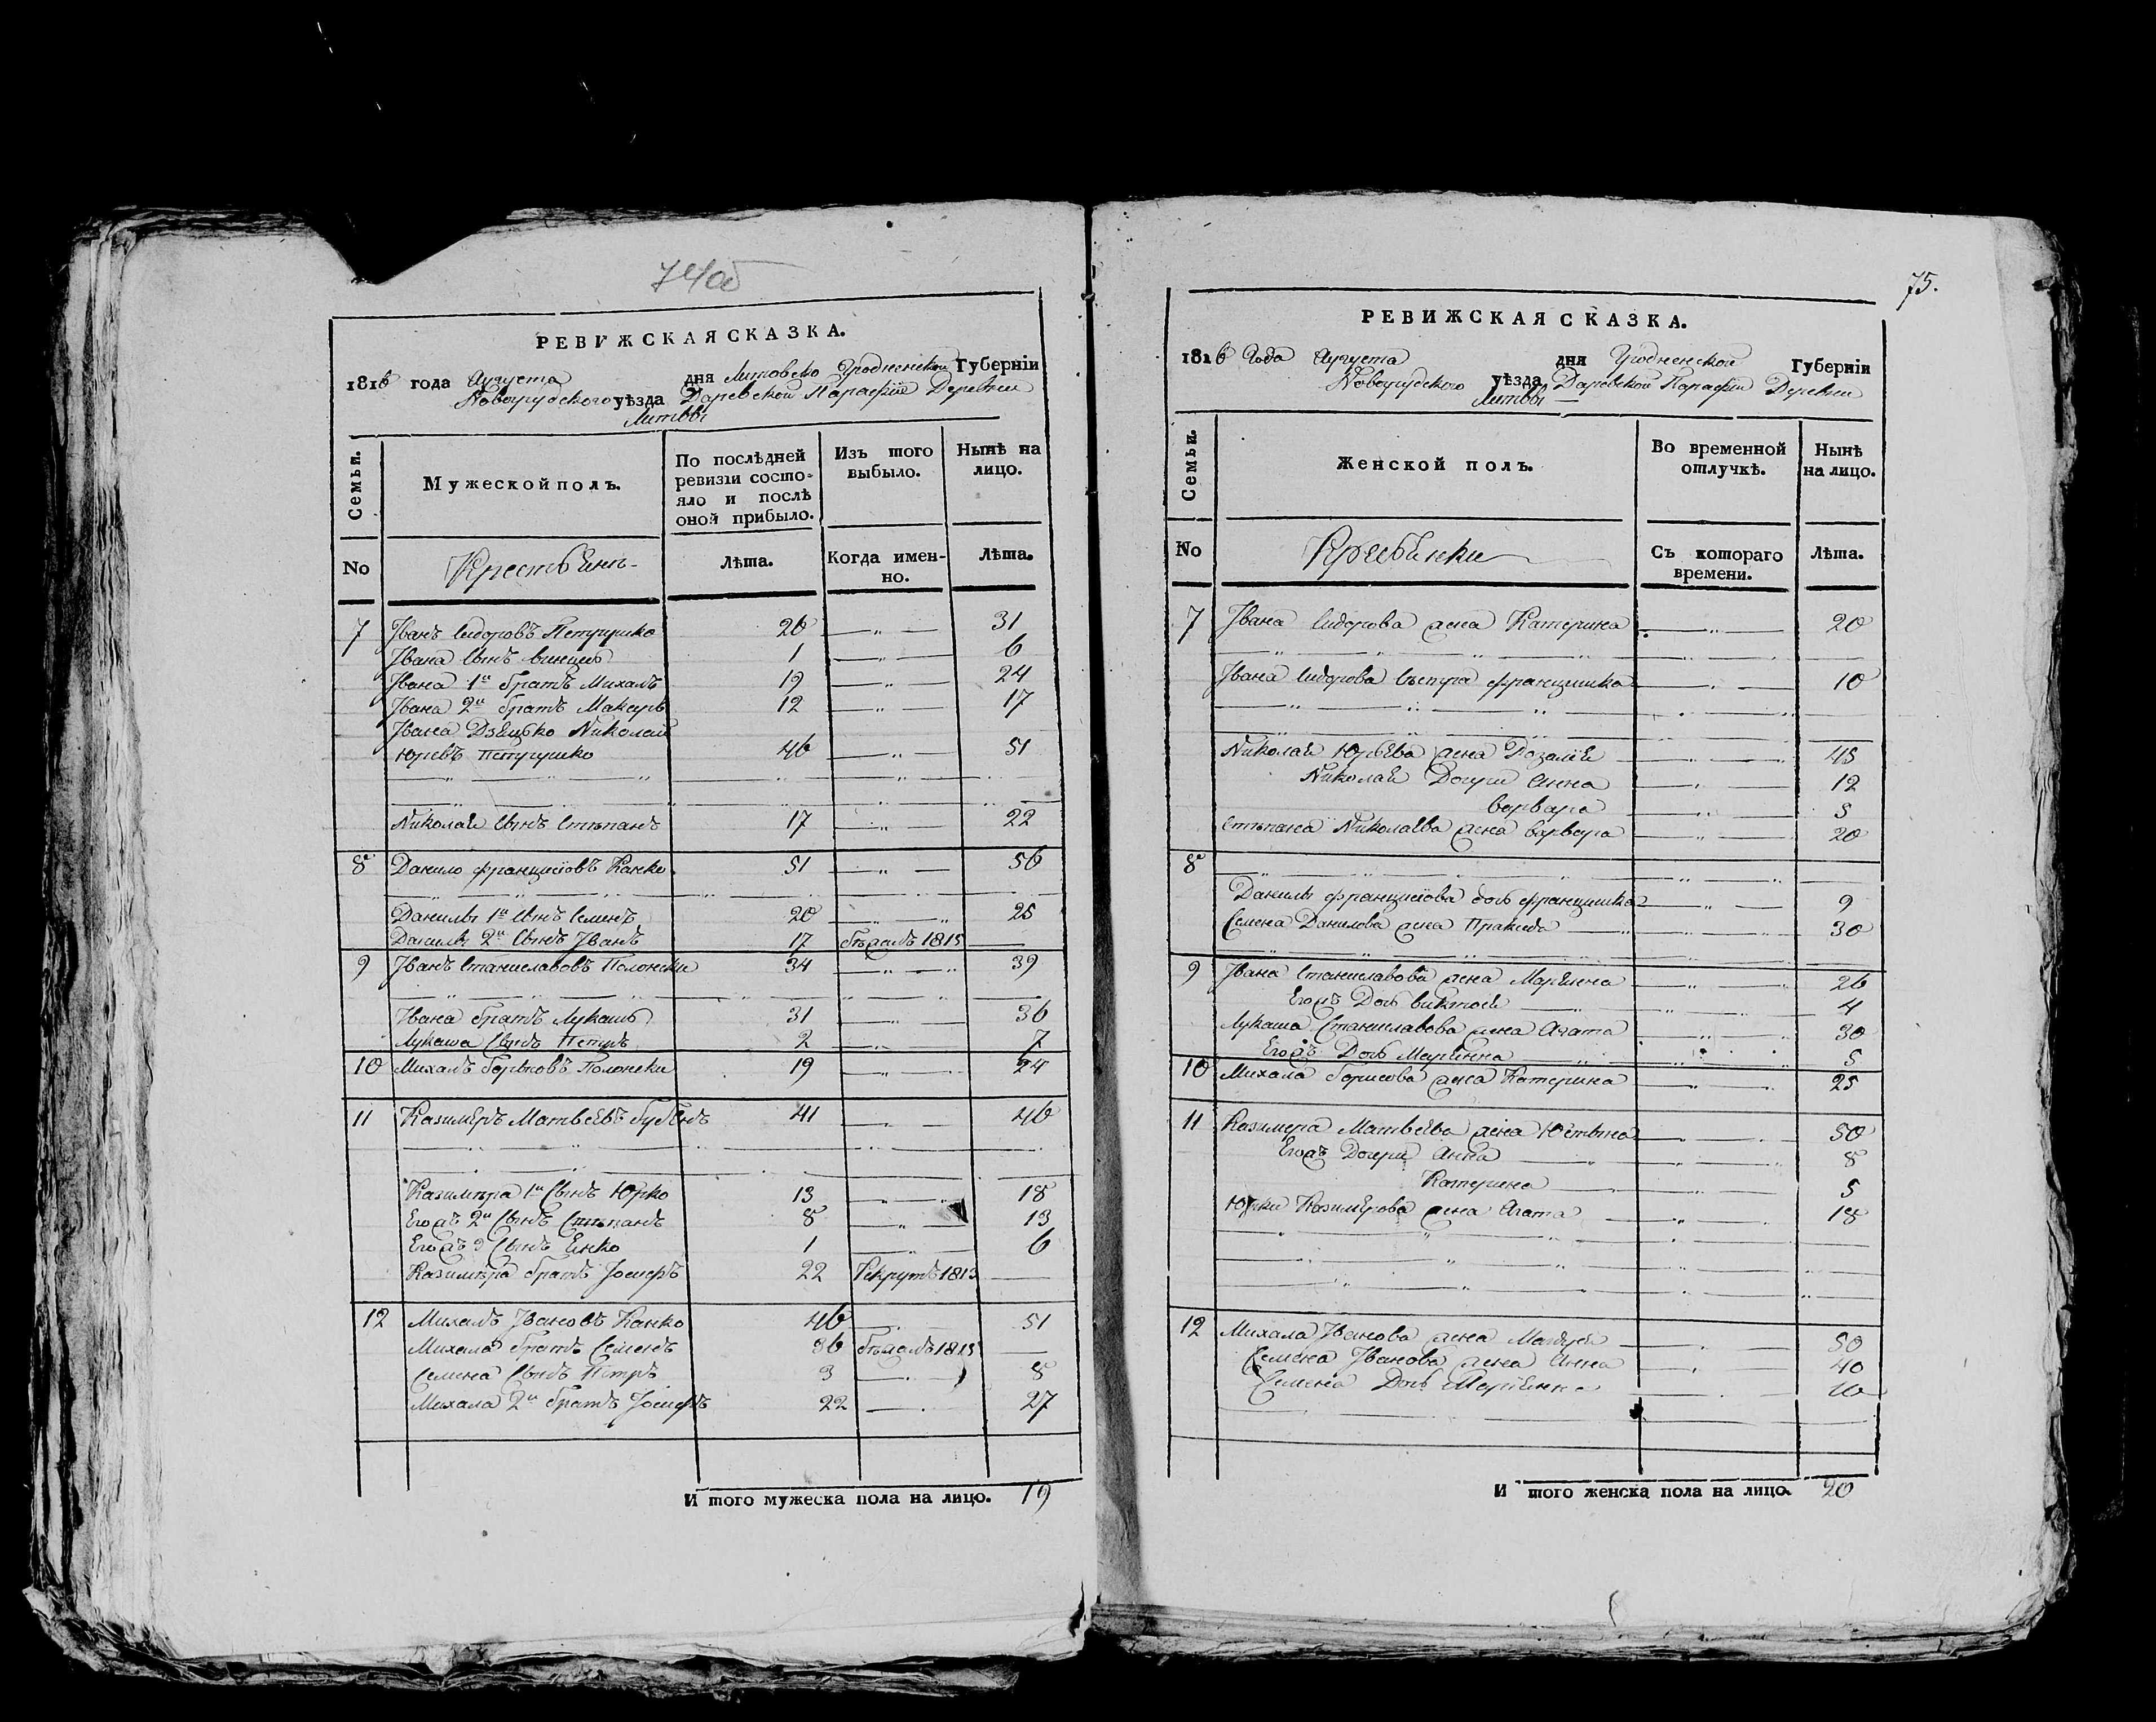 74об
РЕВИЖСКАЯ СКАЗКА.
1816 года Августа дня Литовско Гродненской Губерніи
Новогрудского уѣзда Даревской Парафіи Деревни
Литвы
Семьи.
Мужеской полъ.
По послѣдней ревизіи состо-
яло и послѣ
оной прибыло.
Изъ того
выбыло.
Нынѣ на
лицо.
No
Лѣта.
Когда имен-
но.
Лѣта.
7 Іванъ Сидоровъ Петрушко 26 31
Івана Сынъ 1 6
Івана 1й братъ Михалъ 19 24
Івана 2й братъ 12 17
Івана Николай
Юрьевъ Петрушко 46 51
Николая Сынъ Степанъ 17 22
8 Данило Францишовъ Канко 51 56
Данилы 1й Сынъ Семенъ 20 25
Данилы 2й Сынъ Іванъ 17 бежалъ 1815
9 Іванъ Станиславовъ Полонски 34 39
Івана братъ Лукашъ 31 36
Лукаша Сынъ Петръ 2 7
10 Михалъ Полонски 19 24
11 Казимеръ Матвеевъ 41 46
Казимера 1й Сынъ Юрко 13 18
Егожъ 2й Сынъ Степанъ 8 13
Егожъ 3 Сынъ 1 6
Казимера братъ Іосифъ 22 Рекрутъ 1813
12 Михалъ Івановъ Канко 46 51
Михала братъ Семенъ 36 бежалъ 1813
Семена Сынъ Петръ 3 8
Михала 2й братъ Іосифъ 22 27
И того мужеска пола на лицо. 19
75.
РЕВИЖСКАЯ СКАЗКА.
1816 Года Августа дня Гродненской Губерніи
Новогрудского уѣзда Даревской Парафіи Деревни
Литвы
Семьи.
Женской полъ.
Во временной
отлучкѣ.
Нынѣ
на лицо.
No
Съ котораго
времени.
Лѣта.
7 Івана Сидорова жена Катерина 20
Івана Сидорова сестра Францишка 10
Николая Юрьева жена Розалія 45
Николая Дочери Анна 12
Варвара 5
Степана Николаева жена Варвара 20
8
Данилы Францишова дочь Францишка 9
Семена Данилова жена 30
9 Івана Станиславова жена Маріанна 26
Егожъ Дочь 4
Лукаша Станиславова жена Агата 30
Егожъ Дочь Маріанна 5
10 Михала Борисова жена Катерина 25
11 Казимера Матвеева жена 50
Егожъ Дочери Анна 8
Катерина 5
Юрки Казимерова жена Агата 18
12 Михала Іванова жена 50
Семена Іванова жена Анна 40
Семена Дочь Маріанна 10
И того женска пола на лицо. 20